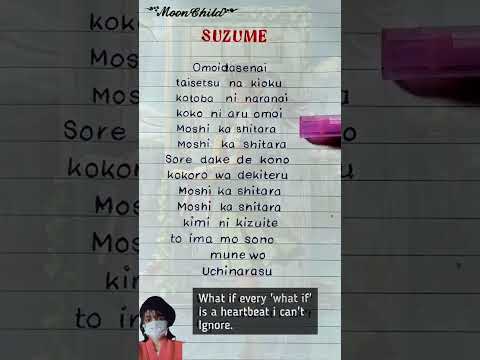 MoonChild
SUZUME
Omoidasenai
taisetsu na kioku
kotoba ni naranai
koko ni aru omoi
Moshi ka shitara
Moshi ka shitara
Sore dake de kono
kokoro wa dekiteru
Moshi ka shitara
Moshi ka shitara
kimi ni kizuite
to ima mo sono
mune wo
Uchinarasu
What if every 'what if'
is a heartbeat i can't
Ignore.